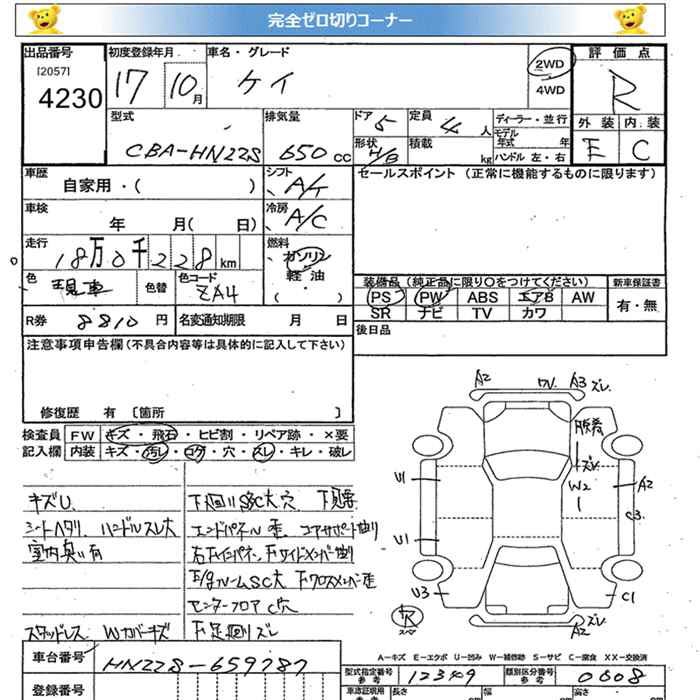 完全ゼロ切りコーナー
出品番号
[2057]
4230
初度登録年月
17 10月
車名・グレード
ケイ
2WD
4WD
評価点
R
外装 内装
E C
型式
CBA-HN22S
排気量
650 cc
ドア 5
形状 H/B
定員 4 人
積載 kg
ディーラー・並行
モデル年式 年
ハンドル 左・右
車歴
自家用・( )
シフト
A/T
セールスポイント(正常に機能するものに限ります)
車検
年 月( 日)
冷房
A/C
走行
18万0千228km
燃料
ガソリン
軽油
( ・ )
色
色替
色コード
ZA4
装備品(純正品に限り○をつけてください)
新車保証書
PS PW ABS エアB AW
SR ナビ TV カワ
有・無
R券 8810円
名変通知期限 月 日
後日品
注意事項申告欄(不具合内容等は具体的に記入して下さい)
修復歴 有 〔箇所 〕
検査員記入欄
FW キズ・飛石・ヒビ割・リペア跡・×要
内装 キズ・汚レ・コゲ・穴・スレ・キレ・破レ
キズU
シートヘタリ ハンドルスレ大
室内臭い有
スタッドレス Wカバーキズ
下廻りSC大穴
エンドパネル歪 コアサポート曲り
センターフロアC穴
下足廻りズレ
A2
W.
A3ズレ
ズレ
W2
A2
C3
U1
U1
U3
C1
ズレ
A2
A-キズ E-エクボ U-凹み W-補修跡 S-サビ C-腐食 XX-交換済
車台番号
HN22S-659787
型式指定番号
参考
類別区分番号
参考
0608
登録番号
車造証明用
長さ cm
幅 cm
高さ cm